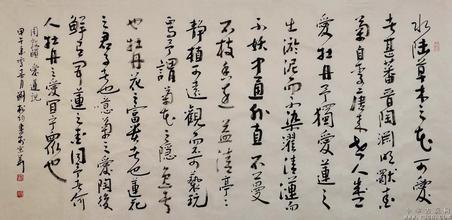 水陸草木之花可愛
者甚蕃晉陶淵明獨愛
菊自李唐來世人甚
愛牡丹予獨愛蓮之
出淤泥而不染濯清漣而
不妖中通外直不蔓
不枝香遠益清亭亭
靜植可遠觀而不可褻玩
焉予謂菊花之隱逸者
也牡丹花之富貴者也蓮花
之君子者也噫菊之愛陶後
鮮有聞蓮之愛同予者何
人牡丹之愛宜乎眾也
周敦頤 愛蓮說
甲午